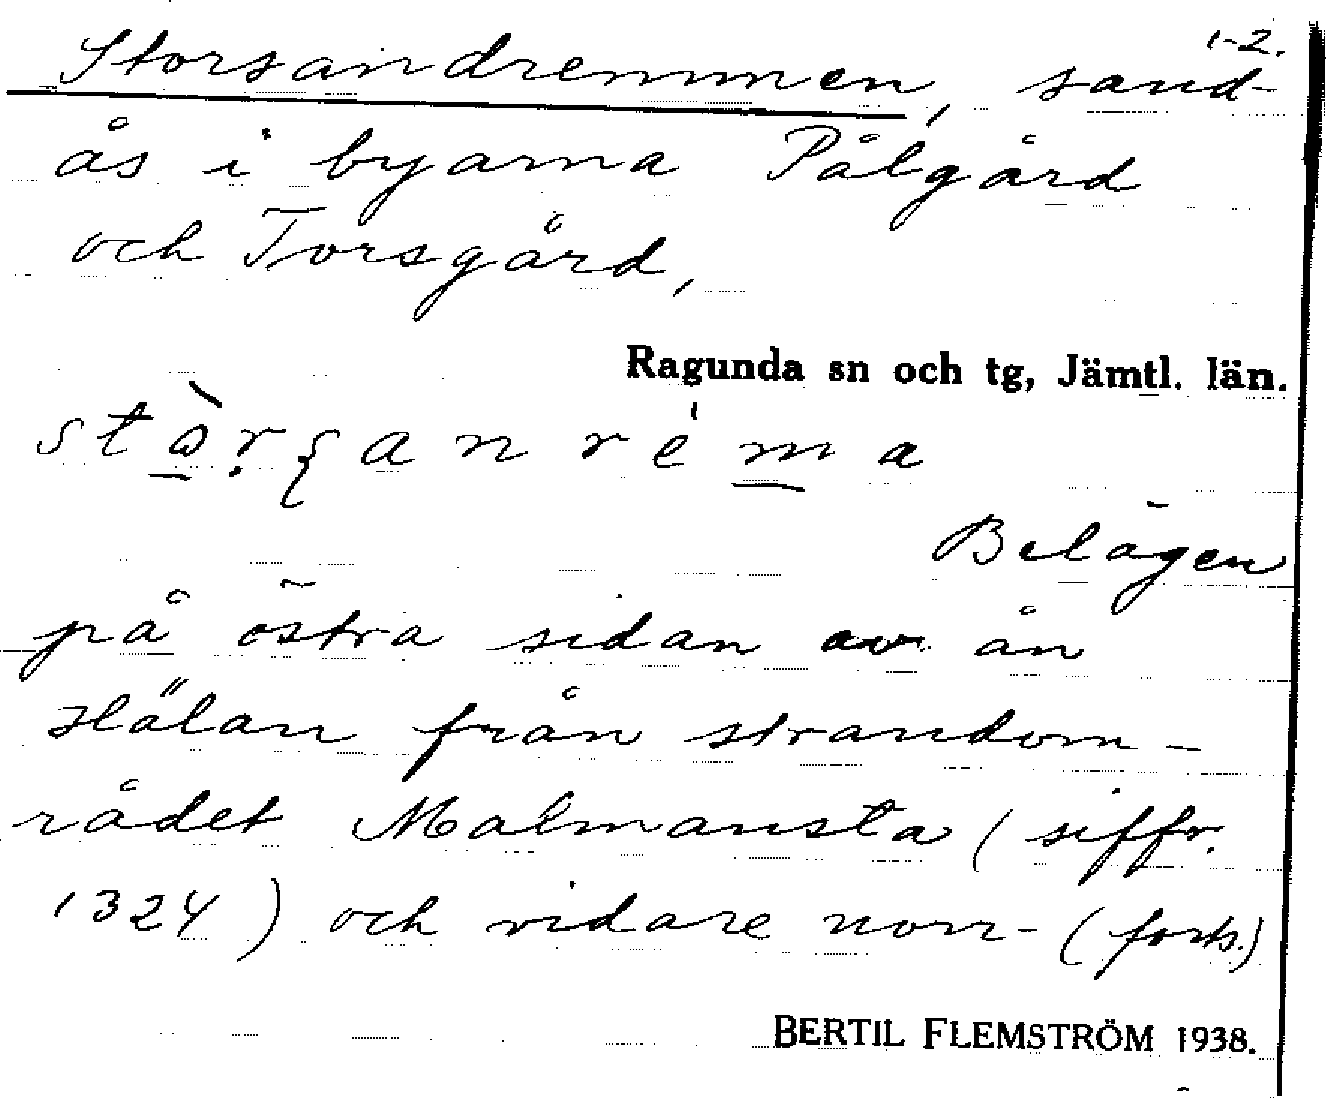 1-2.
Storsandremmen, sand-
ås i byarna Pålgård
och Torsgård,
Ragunda sn och tg, Jämtl. län.
Belägen
på östra sidan av ån
Hälan från strandom-
rådet Malmansta (siffr.
1324) och vidare norr- (forts.)
BERTIL FLEMSTRÖM 1938.